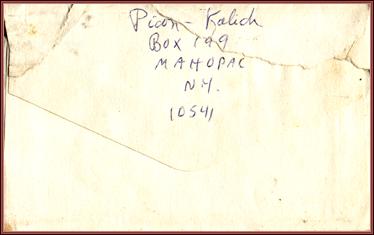 Picon - Kalich
Box 199
MAHOPAC
N.Y.
10541